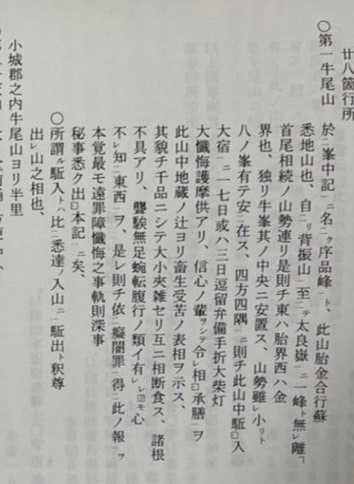 廿八箇行所
〇第一牛尾山
於ニ峯中記ニ名ク序品峰ト、此山胎金合行蘇
悉地山也、自リ背振山至ニ太良嶽ニ一峰ト無レ離ヿ
首尾相続ノ山勢連リ是則チ東ハ胎界西ハ金
界也、独リ牛峯其ノ中央ニ安置ス、山勢雖レ小リト
八ノ峯有テ安ニ在ス、四方四隅ニ則チ此山中駈□入
大宿ニ一七日或ハ三日逗留弁備手折大柴灯
大懺悔護摩供アリ、信心ノ輩ヲシテ令レ相□承膳ヲ
此山中地蔵ノ辻ヨリ畜生受苦ノ表相ヲ示ス、
其貌チ千品ニシテ大小夾雑セリ互ニ相断食ス、諸根
不具アリ、聾騃無足蜿転腹行ノ類イ有レ□モ心
不レ知ニ東西ヲ、是レ則チ依ニ癡闇罪ニ得ニ此ノ報ヲ
本覚最モ遠罪障懺悔之事軌則深事
秘事悉ク出□本記ニ矣、
〇所謂ル駈入トハ比ニ悉達ノ入山ニ駈出ト釈尊
出レ山之相也、
小城郡之内牛尾山ヨリ半里